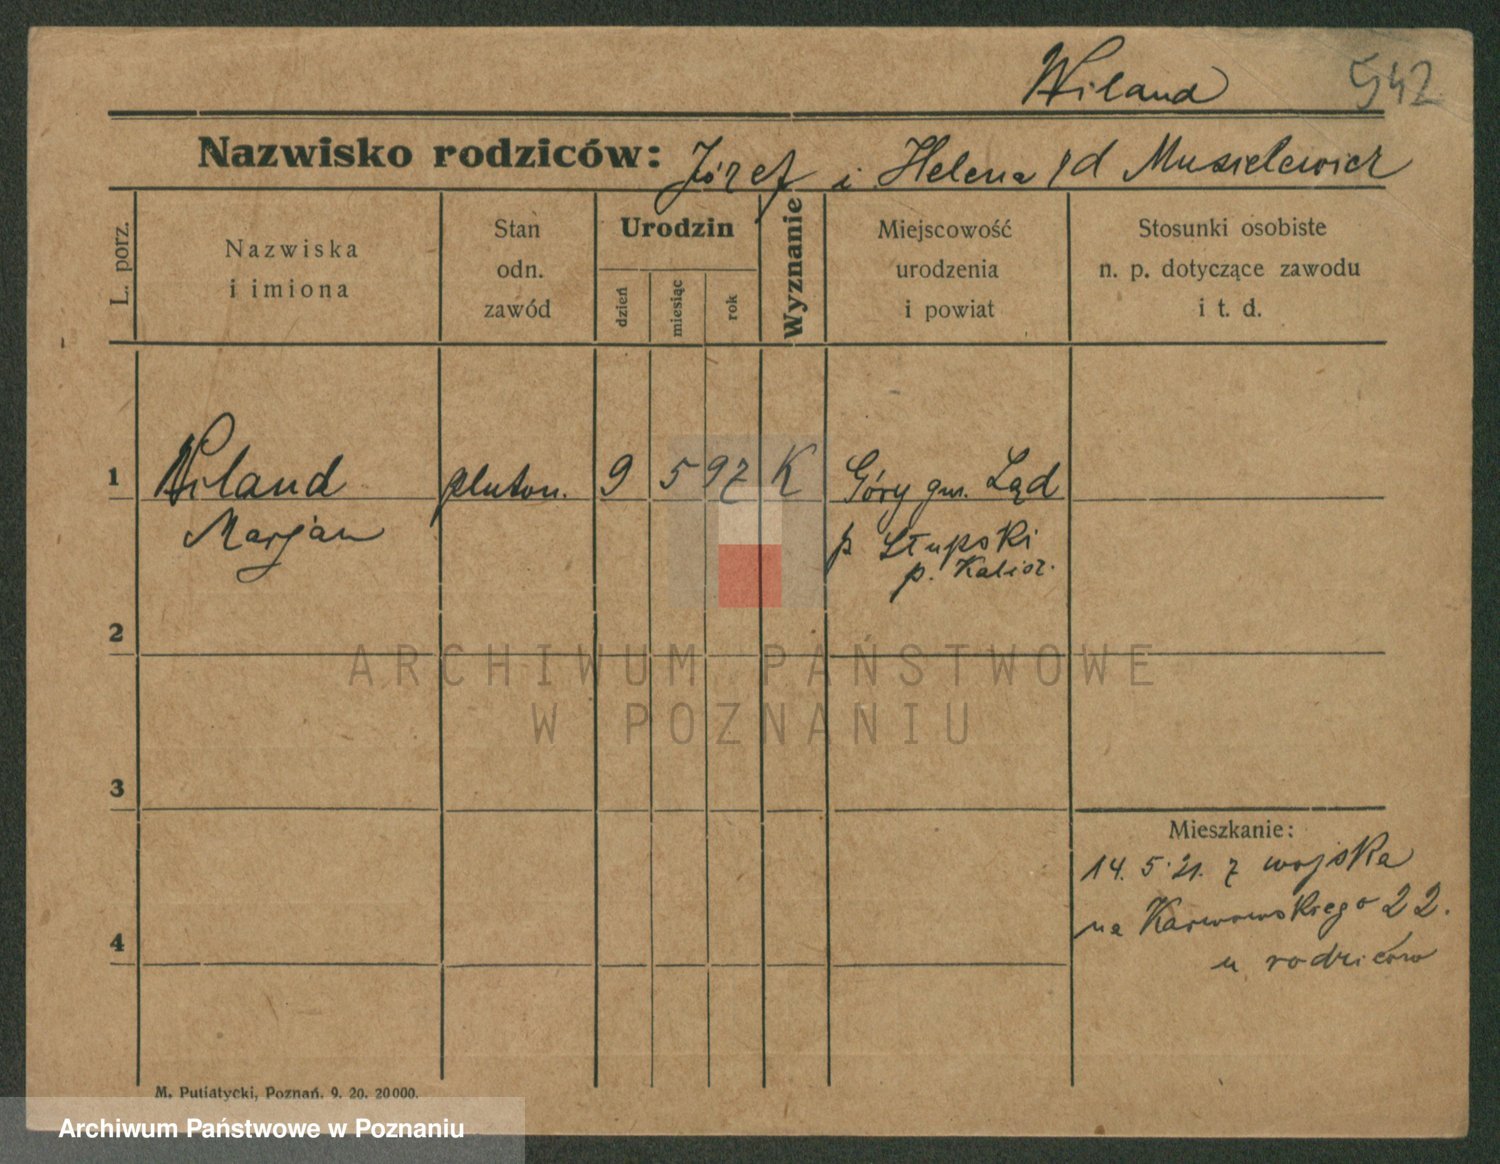 Wiland 542
Nazwisko rodziców: Józef i Helena /d Musielewicz
L. porz.
Nazwiska
i imiona
Stan
odn.
zawód
Urodzin
dzień
miesiąc
rok
Wyznanie
Miejscowość
urodzenia
i powiat
Stosunki osobiste
n. p. dotyczące zawodu
i t. d.
1 Wiland pluton. 9 5 97 K Góry gm. Ląd
Marjan p Słupski
p. Kalisz.
2
3
4
Mieszkanie:
14. 5. 21. z wojska
na Karwowskiego 22.
u rodziców
ARCHIWUM PAŃSTWOWE
W POZNANIU
M. Putiatycki, Poznań. 9. 20. 20000.
Archiwum Państwowe w Poznaniu